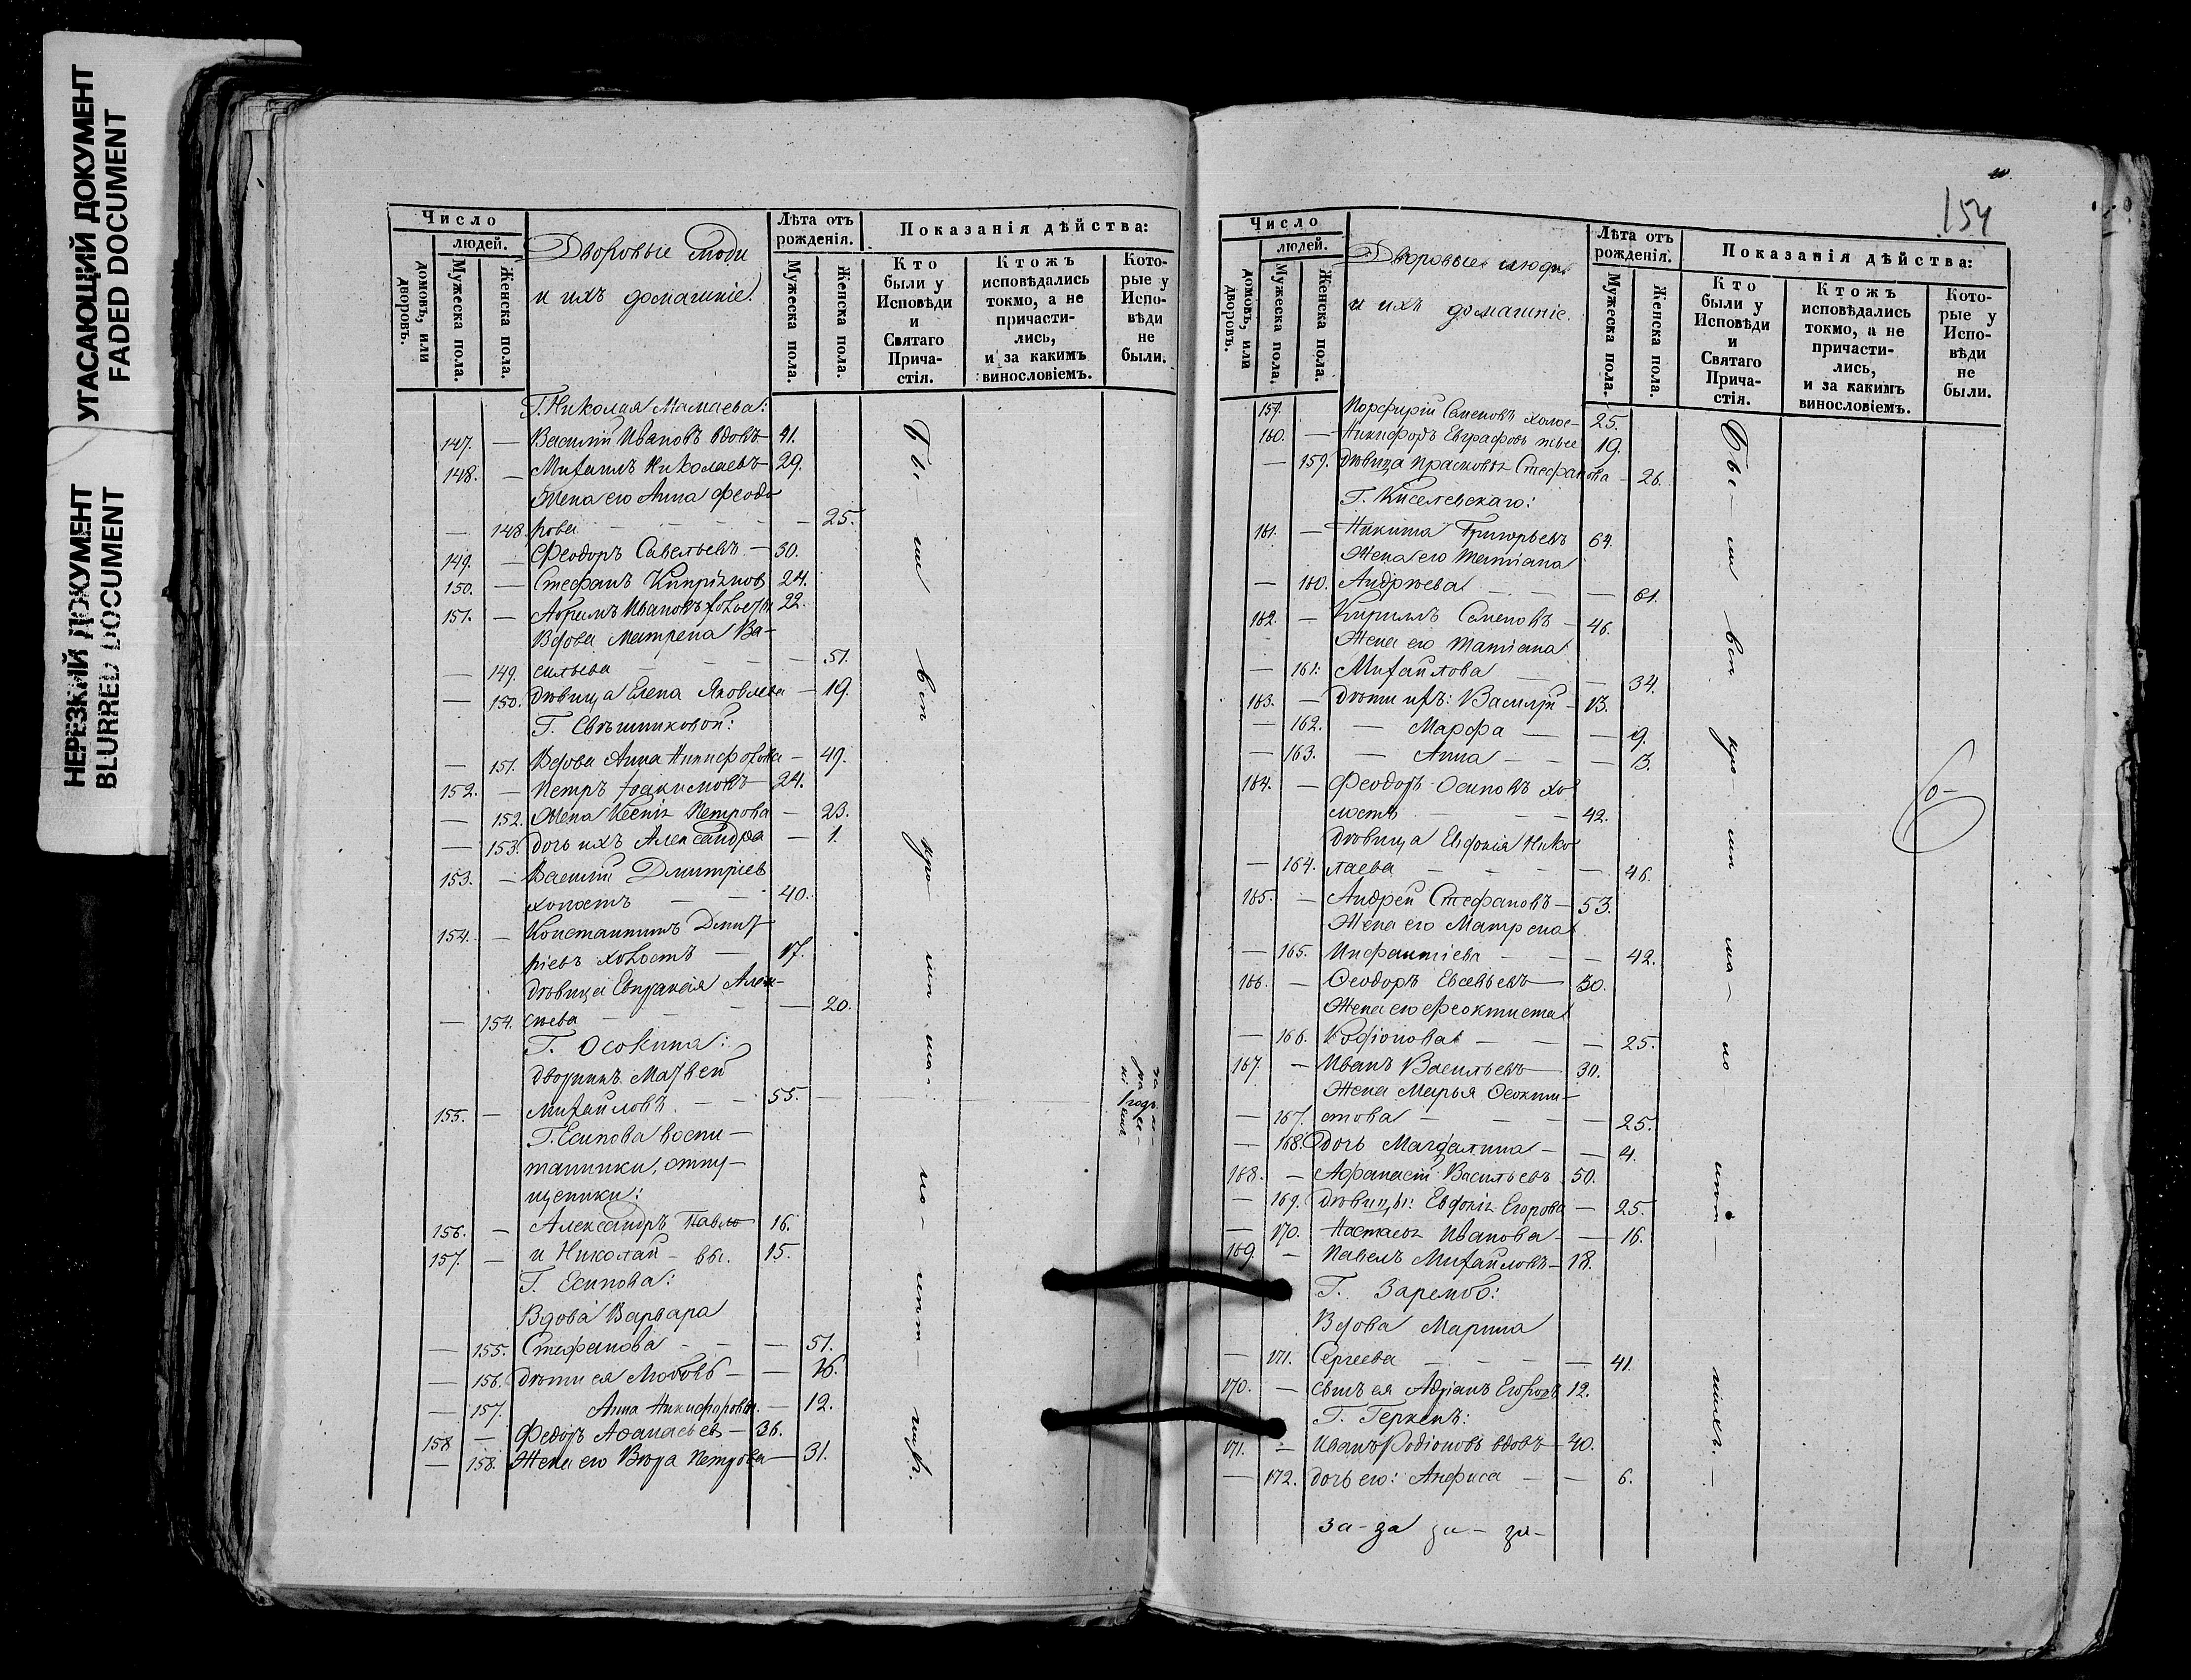 УГАСАЮЩИЙ ДОКУМЕНТ
FADED DOCUMENT
НЕРЕЗКИЙ ДОКУМЕНТ
BLURRED DOCUMENT
Число
людей.
домовъ, или дворовъ.
Мужеска пола.
Женска пола.
Дворовые люди
и ихъ домашніе.
Лѣта отъ рожденія.
Мужеска пола.
Женска пола.
Показанія дѣйства:
Кто были у Исповѣди и Святаго Прича-стія.
Ктожъ исповѣдались токмо, а не причасти-лись, и за какимъ винословіемъ.
Кото-рые у Испо-вѣди не были.
Г. Николая Мамаева:
147. — Василій Ивановъ вдовъ 41.
148. — Михаилъ Николаевъ 29.
Жена его Анна Феодо
— 148. рова — 25.
149. — Феодоръ Савельевъ — 30.
150. — Стефанъ Кипріановъ 24.
151. — Абрамъ Ивановъ холостъ 22.
Вдова Матрена Ва-
— 149. сильева — 51.
— 150. дѣвица Елена Яковлева — 19.
Г. Свѣшниковой:
— 151. Вдова Анна Никифорова — 49.
152. — Петръ Іоакимовъ 24.
— 152. Жена Ксенія Петрова — 23.
— 153. дочь ихъ Александра — 1.
153. — Василій Дмитріев
холостъ — 40.
154. — Константинъ Дмит
ріевъ холостъ — 17.
дѣвица Евпраксія Алек-
— 154. сѣева — 20.
Г. Осокина:
дворникъ Матвей
155. — Михайловъ — 55. —
Г. Есипова воспи-
танники, отпу-
щенники:
156. — Александръ Павло 16.
157. — и Николай — вы. 15.
Г. Есипова:
Вдова Варвара
— 155. Стефанова — 51.
— 156. дѣти ея Любовь — 16.
— 157. Анна Никифоровы. — 12.
158 — Федоръ Афанасьев — 36.
— 158. Жена его Вѣра Петрова — 31.
Бы-ли вси кро-ми ма-ло-лѣт-нихъ.
154
Число
людей.
домовъ, или дворовъ.
Мужеска пола.
Женска пола.
Дворовые люди
и ихъ домашніе.
Лѣта отъ рожденія.
Мужеска пола.
Женска пола.
Показанія дѣйства:
Кто были у Исповѣди и Святаго Прича-стія.
Ктожъ исповѣдались токмо, а не причасти-лись, и за какимъ винословіемъ.
Кото-рые у Испо-вѣди не были.
159. Порфирій Семеновъ холос- 25.
160. — Никифоръ Евграфовъ тоже 19.
— 159. дѣвица Прасковья Стефанова — 26.
Г. Киселевскаго:
161. — Никита Григорьевъ 64.
Жена его Татіана
— 160. Андрѣева — 61.
162. — Кириллъ Семеновъ — 46.
Жена его Татіана
— 161. Михайлова — 34.
163. — Дѣти ихъ: Василій — 13.
— 162. — Марфа — 9.
— 163. — Анна — 3.
164. — Феодоръ Осиповъ хо
лостъ — 42.
дѣвица Евдокія Нико
— 164. лаева — 46.
165. — Андрей Стефановъ — 53.
Жена его Матрена
— 165. Инфантіева — 42.
166. — Феодоръ Евсевьевъ — 30.
Жена его Феоктиста
— 166. Родіонова — 25.
167. — Иванъ Васильевъ — 30.
Жена Марья Феокти-
— 167. стова — 25.
— 168. дочь Магдалина — 4.
168. — Афанасій Васильевъ 50.
— 169. дѣвицы: Евдокія Егорова — 25.
— 170. Настасья Иванова — 16.
169. — Павелъ Михайловъ — 18.
Г. Зарембо:
Вдова Марина
— 171. Сергеева — 41.
170. — сынъ ея Адріанъ Егоровъ 12.
Г. Геркенъ:
171. — Иванъ Родіоновъ вдовъ — 40.
— 172. дочь его: Анфиса — 6.
Бы-ли вси кро-ми ма-ло-лѣт-нихъ.